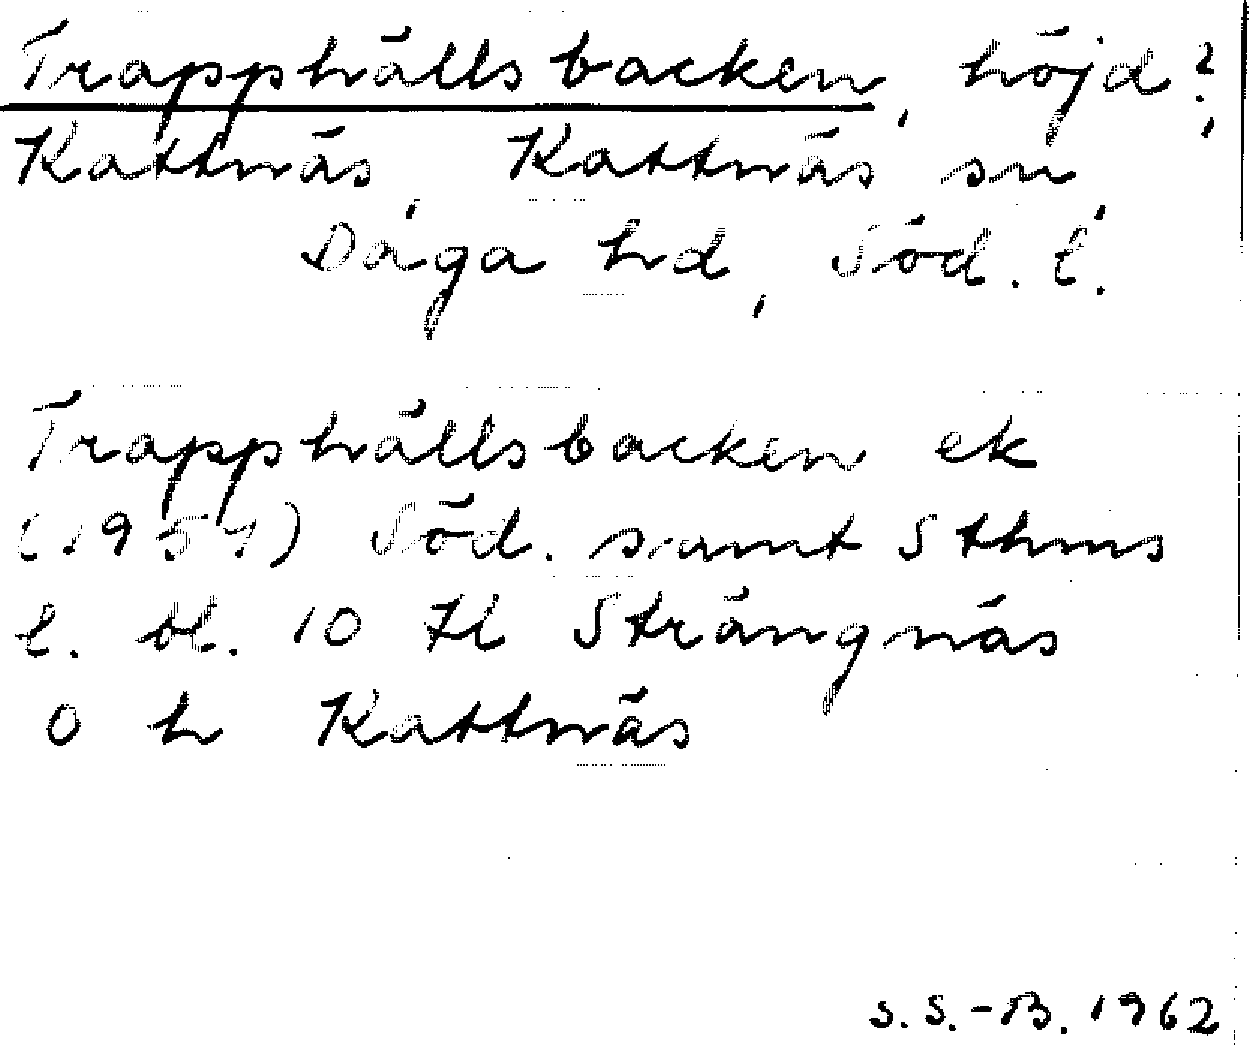 Trapphällsbacken, höjd?,
Kattnäs, Kattnäs sn,
Daga hd, Söd. l.
Trapphällsbacken ek
(1957) Söd. samt Sthms
l. bl. 10 Kl Strängnäs
O h Kattnäs
S.S.-B. 1962